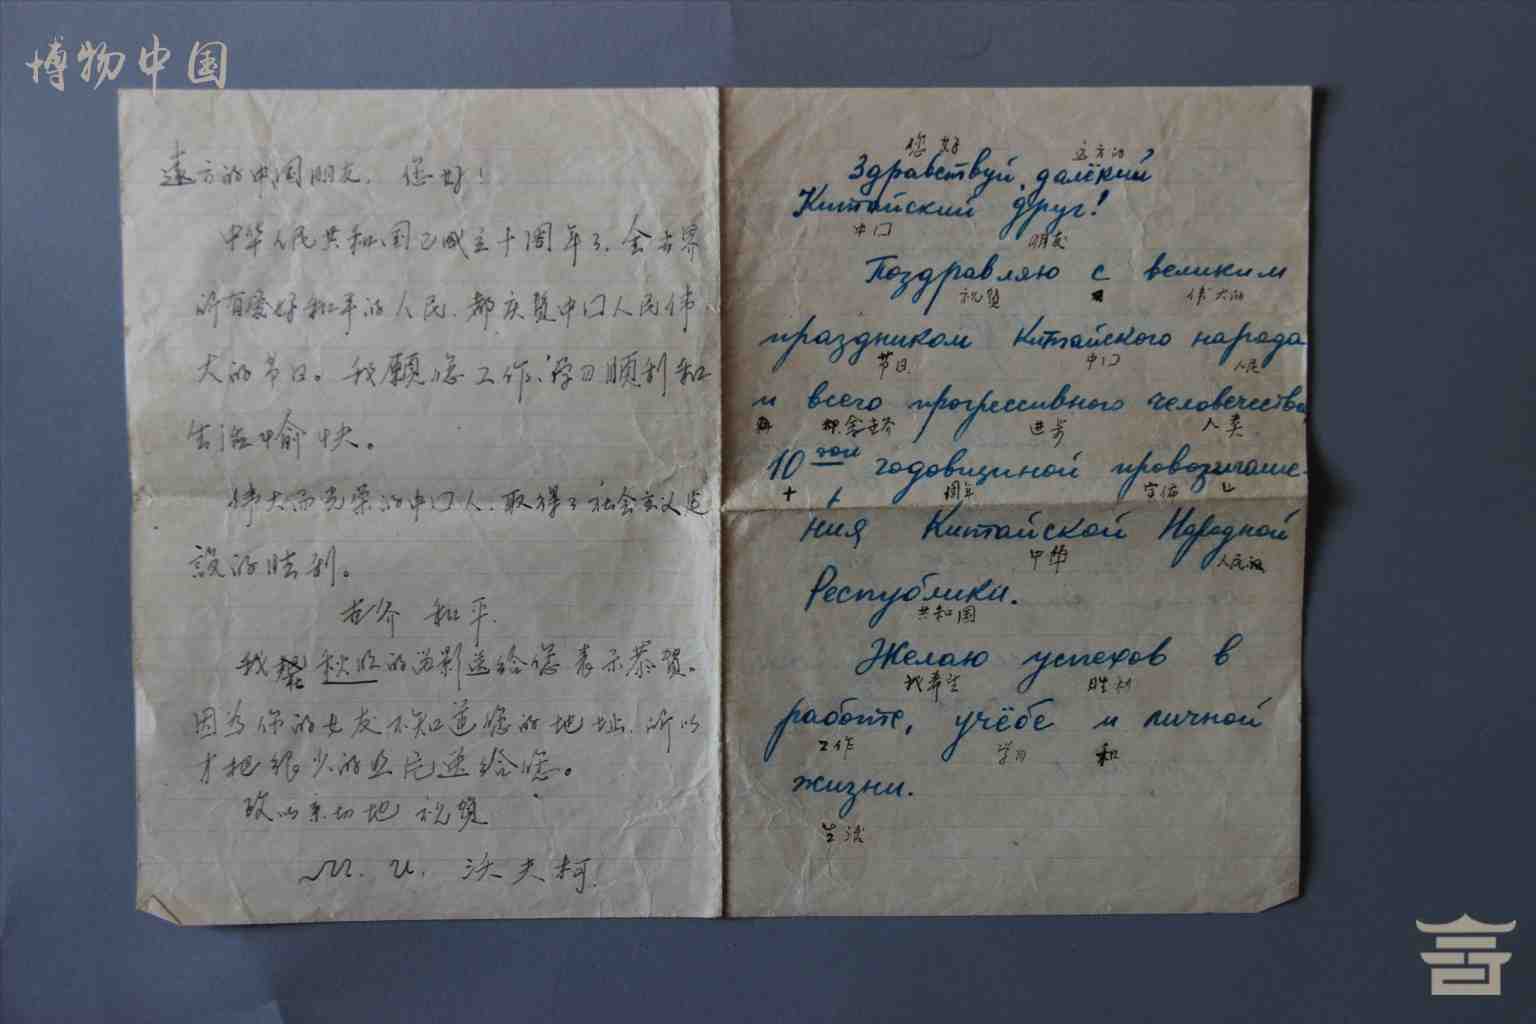 博物中国
遠方的中国朋友，您好！
中华人民共和国已成立十周年了，全世界
所有爱好和平的人民，都庆贺中门人民伟
大的节日。我願您工作、学习順利和
生活愉快。
伟大而光荣的中门人，取得了社会主义建
設的胜利。
世界和平。
我 秋收的 影送给您表示恭贺。
因为你的女友不知道您的地址，所以
才把很少的 送给您。
致以亲切地祝贺
М. И. 沃夫柯.
您好 远方的
Здравствуй, далёкий
Китайский друг!
中门 朋友
Поздравляю с великим
祝贺 伟大的
праздником Китайского народа
节日 中门 人民
и всего прогрессивного человечества
全世界 进步 人类
10 той годовщиной провозглаше-
十 周年 宣佈
ния Китайской Народной
中华 人民的
Республики.
共和国
Желаю успехов в
我希望 胜利
работе, учёбе и личной
工作 学习 和
жизни.
生活